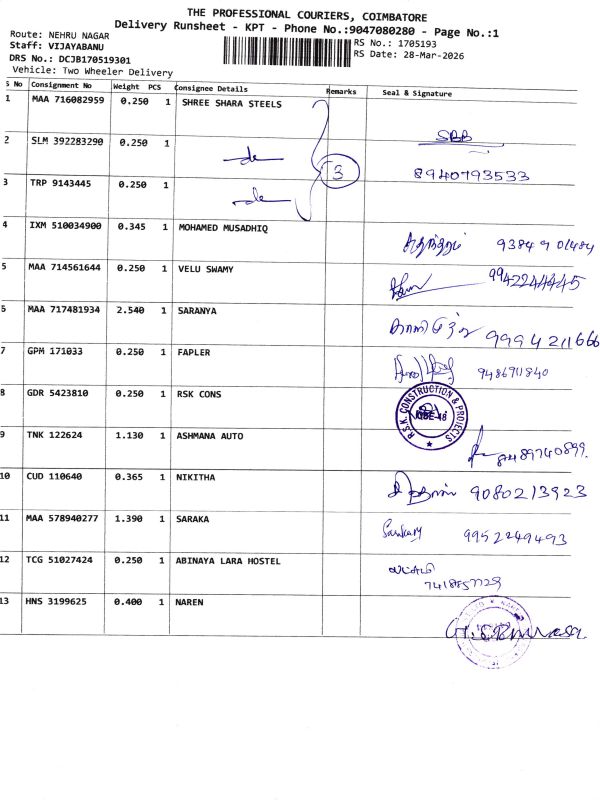 THE PROFESSIONAL COURIERS, COIMBATORE
Delivery Runsheet - KPT - Phone No.:9047080280 - Page No.:1
Route: NEHRU NAGAR
Staff: VIJAYABANU
DRS No.: DCJB170519301
Vehicle: Two Wheeler Delivery
RS No.: 1705193
RS Date: 28-Mar-2026
S No Consignment No Weight PCS Consignee Details Remarks Seal & Signature
1 MAA 716082959 0.250 1 SHREE SHARA STEELS
SBB
2 SLM 392283290 0.250 1
3 8940793533
3 TRP 9143445 0.250 1
4 IXM 510034900 0.345 1 MOHAMED MUSADHIQ
5 MAA 714561644 0.250 1 VELU SWAMY 9942244445
6 MAA 717481934 2.540 1 SARANYA 9994211666
7 GPM 171033 0.250 1 FAPLER
8 GDR 5423810 0.250 1 RSK CONS
R.S.K. CONSTRUCTION & PROJECTS
9 TNK 122624 1.130 1 ASHMANA AUTO
10 CUD 110640 0.365 1 NIKITHA 9080213923
11 MAA 578940277 1.390 1 SARAKA 9952249493
12 TCG 51027424 0.250 1 ABINAYA LARA HOSTEL
13 HNS 3199625 0.400 1 NAREN